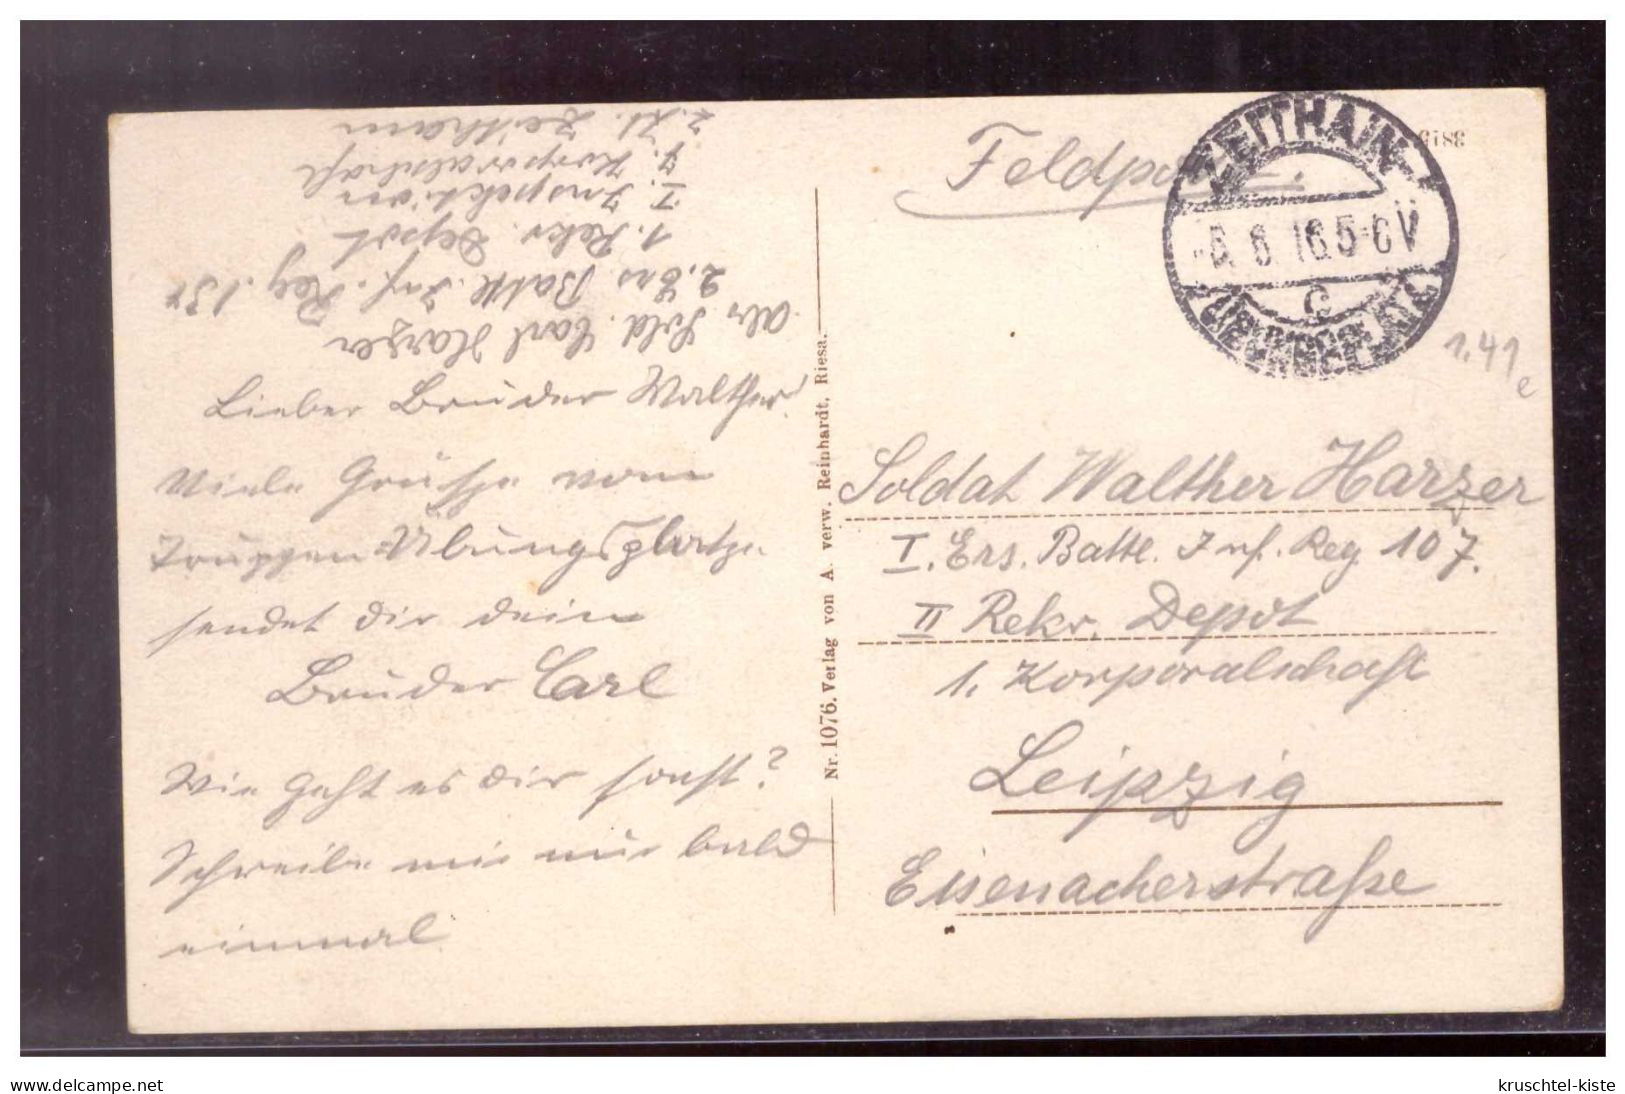 Feldpost.
ZEITHAIN
6. 16. 5-6 V
c
(ÜBUNGSPLATZ)
1.41
e
Soldat Walther Harzer
I. Ers. Batll. Inf. Reg 107.
II Rekr. Depot
1. Korporalschaft
Leipzig
Eisenacherstraße
Nr. 1076. Verlag von A. verw. Reinhardt, Riesa.
Abs. Sold. Carl Harzer
2. Ers Batll. Inf. Reg.
1. Rekr. Depot
I. Inspektion
Korporalschaft
z. Zt. Zeithain
Lieber Bruder Walther!
Viele Grüße vom
Truppen=Übungsplatze
sendet dir dein
Bruder Carl
Wie geht es dir sonst?
Schreibe mir nur bald
einmal
www.delcampe.net
kruschtel-kiste